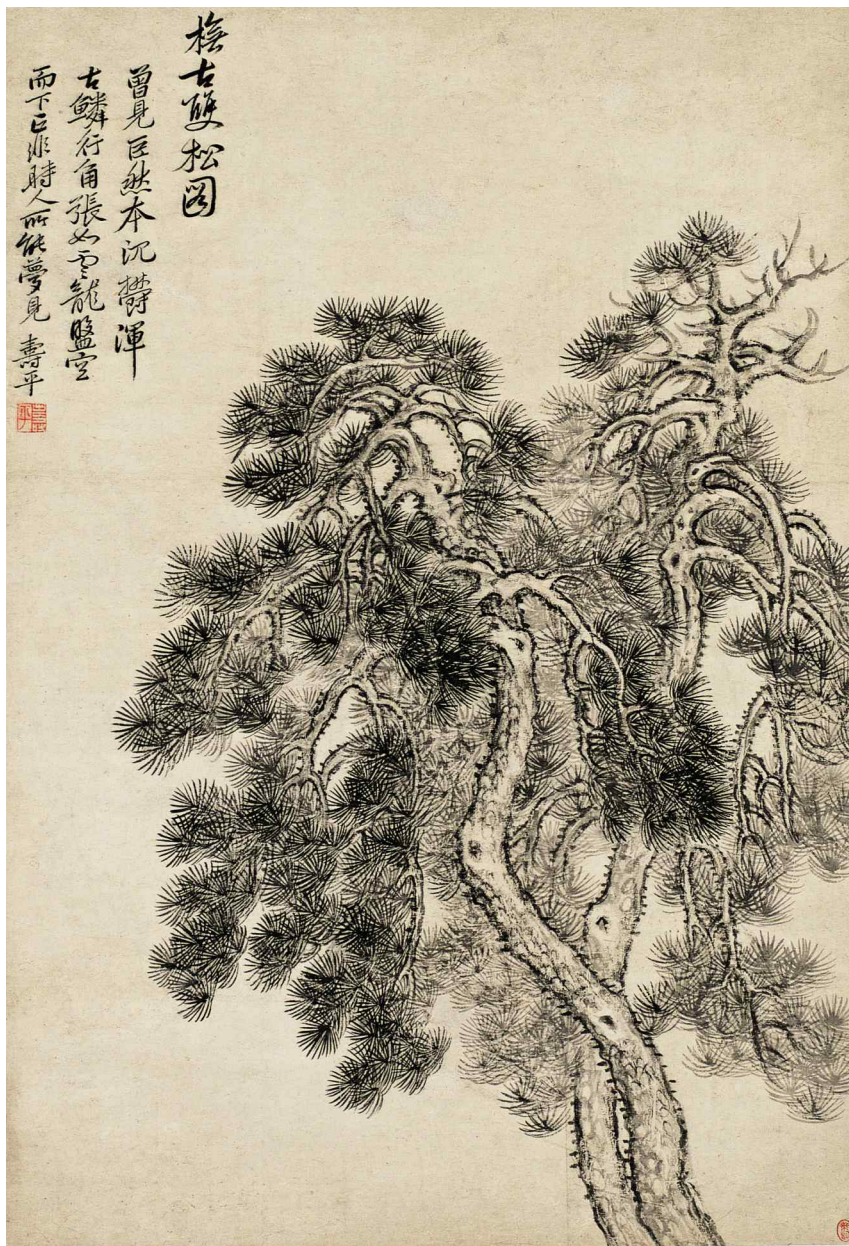 橅古雙松図
曾見巨然本沉欝渾
古鱗行角張如雲龍盤空
而下已非時人所能夢見 壽平